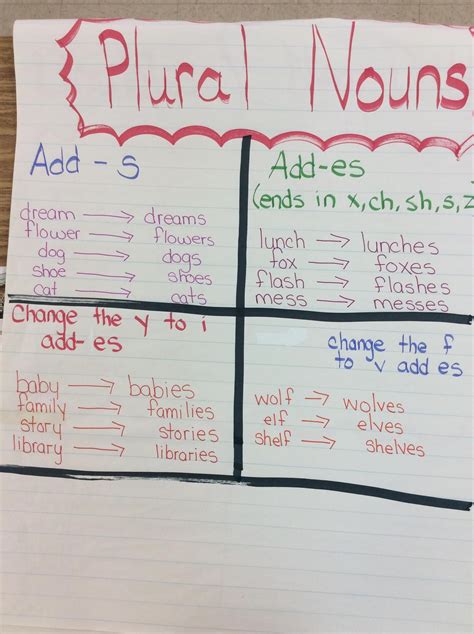 Plural Nouns
Add - s
dream → dreams
flower → flowers
dog → dogs
shoe → shoes
cat → cats
Add-es
(ends in x, ch, sh, s, z
lunch → lunches
fox → foxes
flash → flashes
mess → messes
Change the y to i
add- es
baby → babies
family → families
story → stories
library → libraries
change the f
to v add es
wolf → wolves
elf → elves
shelf → shelves